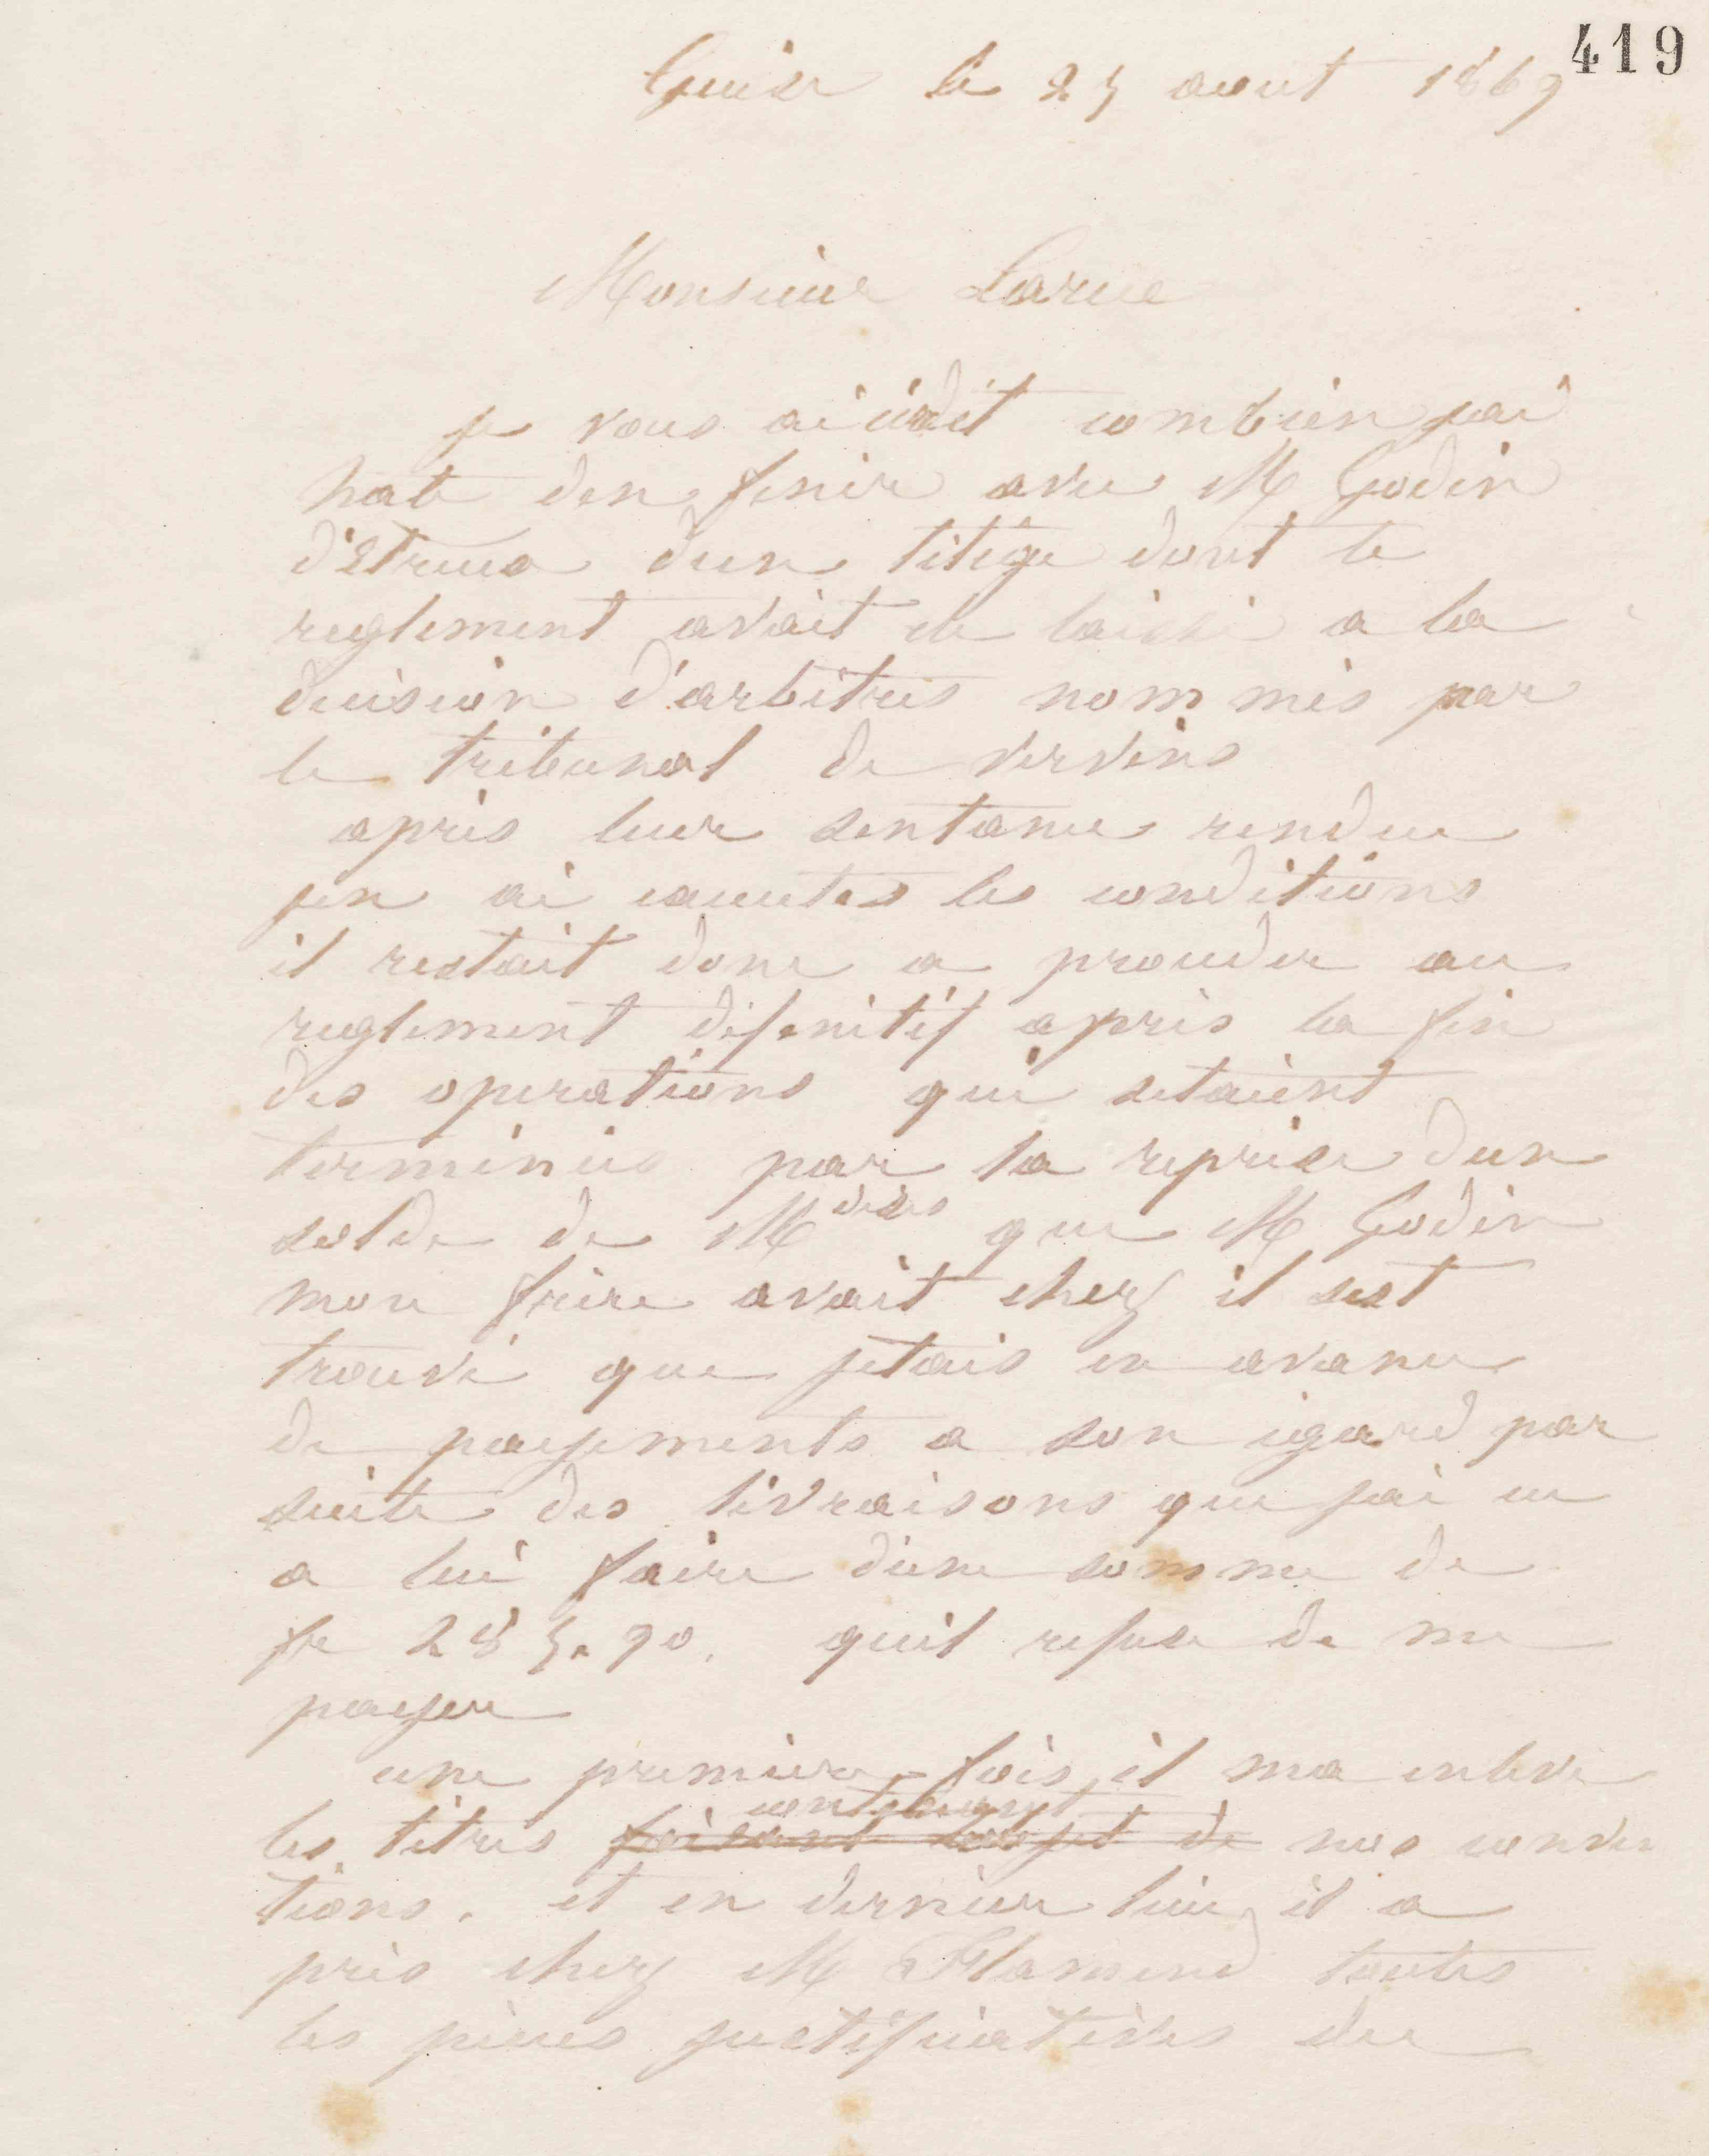 419
Guise le 25 aout 1869
Monsieur Larue
je vous ai ecrit combien jai
hate den finir avec M Godin
d'Etreux dun litige dont le
reglement avait ete laissé a la
decision d'arbitres nommés par
le tribunal de Vervins
apres leur sentance rendue
jen ai executes les conditions
il restait donc a proceder au
reglement difinitif apres la fin
des operations qui setaient
terminées par la reprise dun
solde de Mdises que M Godin
mon frère avait chez il sest
trouvé que jetais en avance
de payements a son égard par
suite des livraisons que jai eu
a lui faire d'une somme de
fr 285.90. quil refuse de me
payer
une premiere fois il ma enleve
contenant
les titres faisant lobjet de nos conven
tions. et en dernier lieu il a
pris chez M Flamend toutes
les pieces justificatives du